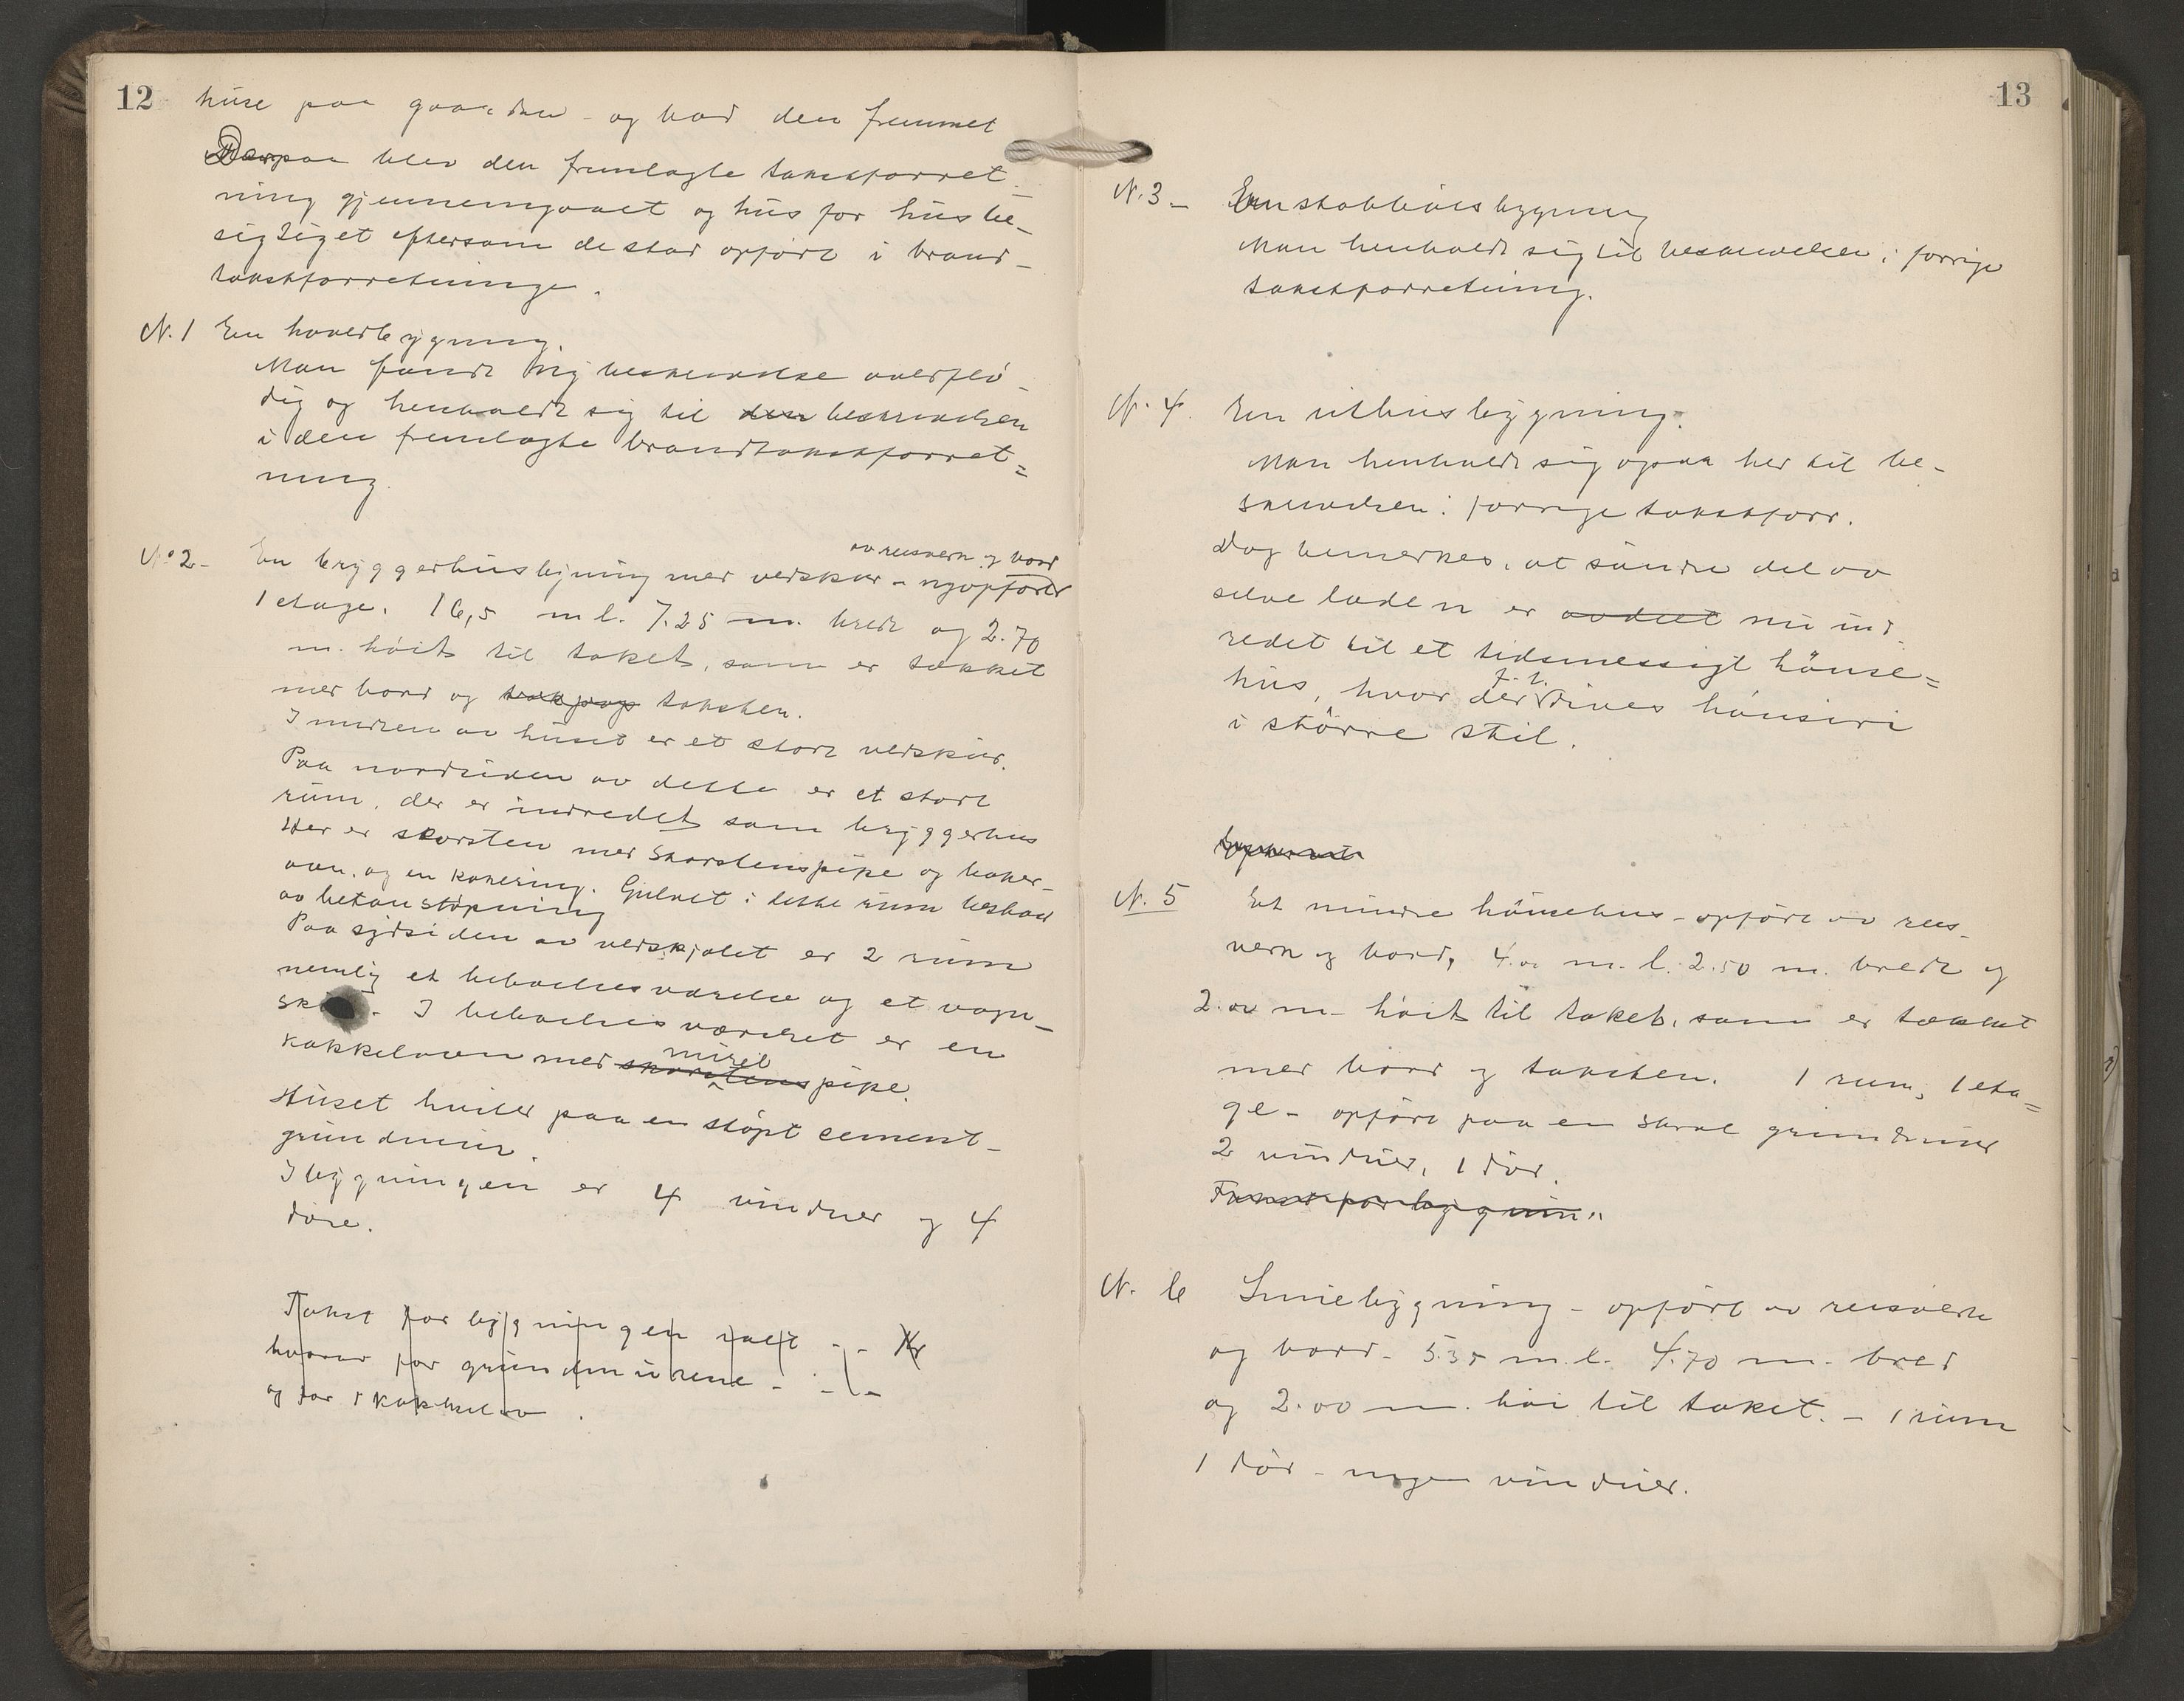 12
huse paa gaarden og bad den fremmet
Derpaa blev den fremlagte takstforret-
ning gjennemgaaet og hus for hus be-
sigtiget eftersom de staar opført i brand-
takstforretninge.
N. 1 En hovedbygning.
Man fandt ny beskrivelse overflø-
dig og henholdt sig til den beskrivelsen
i den fremlagte brandtakstforret=
ning.
No 2- En bryggerhusbygning med vedskur - nyopført
av reisverk og bord
1 etage. 16,5 m l. 7.25 m. bredt og 2.70
m. høit til taket, som er tækket
med bord og takpap taksten.
I midten av huset er et stort vedskur.
Paa nordsiden av dette er et stort
rum, der er indredet som bryggerhus
Her er skorsten med skorstenspipe og baker-
ovn, og en kokering. Gulvet i dette rum bestaar
av betonstøpning
Paa sydsiden av vedskjolet er 2 rum
nemlig et beboelsesværelse og et vogn-
sk. I beboelsesværelset er en
kakkelovn med skorstens muret pipe.
Huset hviler paa en støpt cement-
grundmur.
I bygningen er 4 vinduer og 4
døre.
Takst for bygningen ialt - - Kr
hvorav for grundmurene - - -
og for 1 kakkelov .
13
N. 3 - En stabbursbygning
Man henholdt sig til beskrivelsen i forrige
takstforretning.
N. 4. En uthusbygning.
Man henholdt sig ogsaa her til be-
skrivelsen i forrige takstforr.
Dog bemerkes, at søndre del av
selve laden er avdelt nu ind-
redet til et tidsmessigt hønse=
hus, hvor der f. t. drives hønseri
i større stil.
N. 5 Et mindre hønsehus - opført av reis-
verk og bord, 4.00 m. l. 2.50 m. bredt og
2.00 m. høit til taket, som er tækket
med bord og taksten. 1 rum, 1 eta=
ge - opført paa en skral grundmur
2 vinduer, 1 dør.
Takst for bygnin
N. 6 Smiebygning - opført av reisverk
og bord - 5.35 m. l. 4.70 m. bred
og 2.00 m. høi til taket. - 1 rum
1 dør - ingen vinduer.